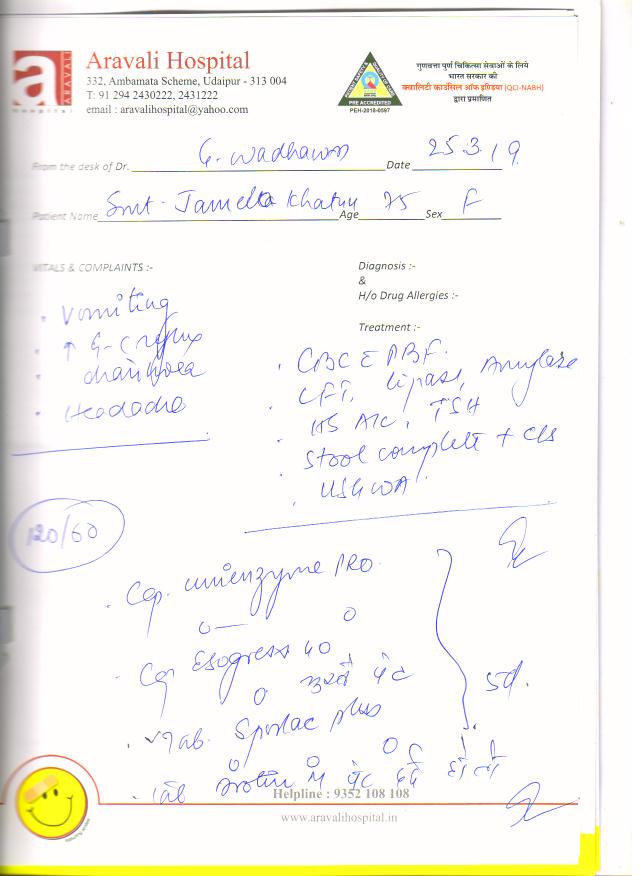 a
ARAVALI
Hospital
Aravali Hospital
332, Ambamata Scheme, Udaipur - 313 004
T: 91 294 2430222, 2431222
email : aravalihospital@yahoo.com
PRE ACCREDITED
PEH-2018-0597
गुणवत्ता पुर्ण चिकित्सा सेवाओं के लिये
भारत सरकार की
क्वालिटी काउंसिल ऑफ इण्डिया (QCI-NABH)
द्वारा प्रमाणित
From the desk of Dr. G. Wadhawan Date 25.3.19
Patient Name Smt. Khatun Age 75 Sex F
VITALS & COMPLAINTS :-
Vomiting
↑ G-
Headache
120/60
Diagnosis :-
&
H/o Drug Allergies :-
Treatment :-
CBC PBF.
Lipase, Amylase
A1C, TSH
Stool complete + C/s
USG WA
Cap. Unienzyme PRO
0— 0
Cap Esogress 40
0
Tab. Sporlac plus
0 0 0
5d.
Helpline : 9352 108 108
www.aravalihospital.in